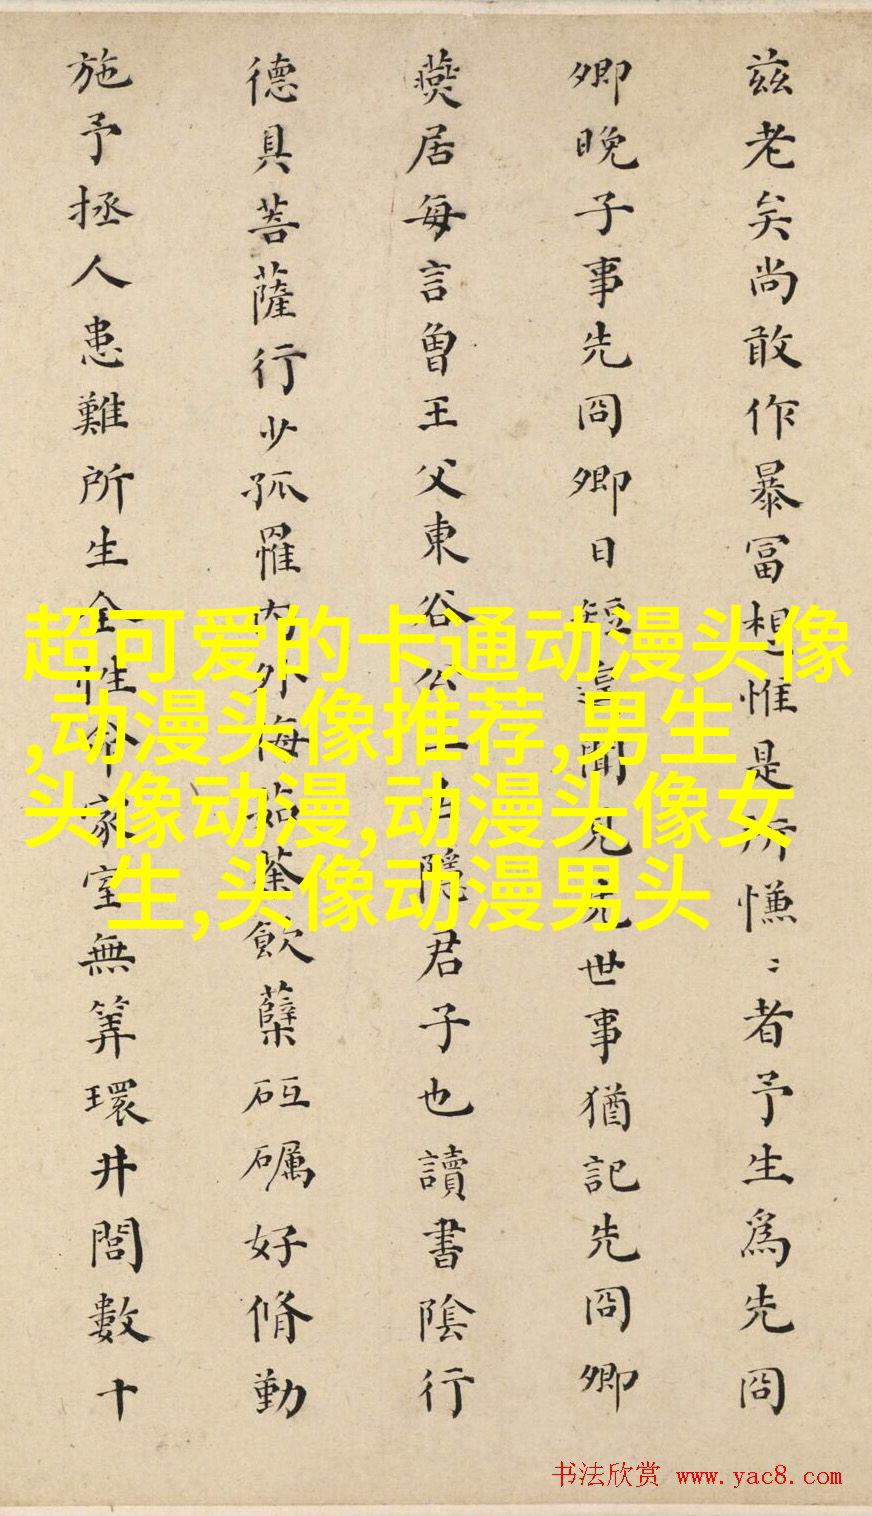 兹老矣尚敢作暴冨想惟是所慊〻者予生爲先冏
卿晚子事先冏卿日短聞見先世事猶記先冏卿
燕居每言曾王父東谷公一隱君子也讀書陰行
德具菩薩行少孤罹内外侮茹荼飲蘗砥礪好脩勤
施予拯人患難所生全性命家室無筭環井閭數十
超可爱的卡通动漫头像
,动漫头像推荐,男生
头像动漫,动漫头像女
生,头像动漫男头
书法欣赏 www.yac8.com